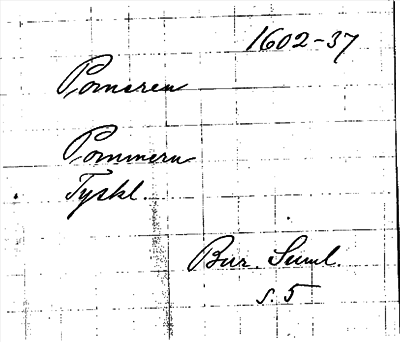 1602-37
Pomeren
Pommern
Tyskl.
Bur. Suml.
s. 5